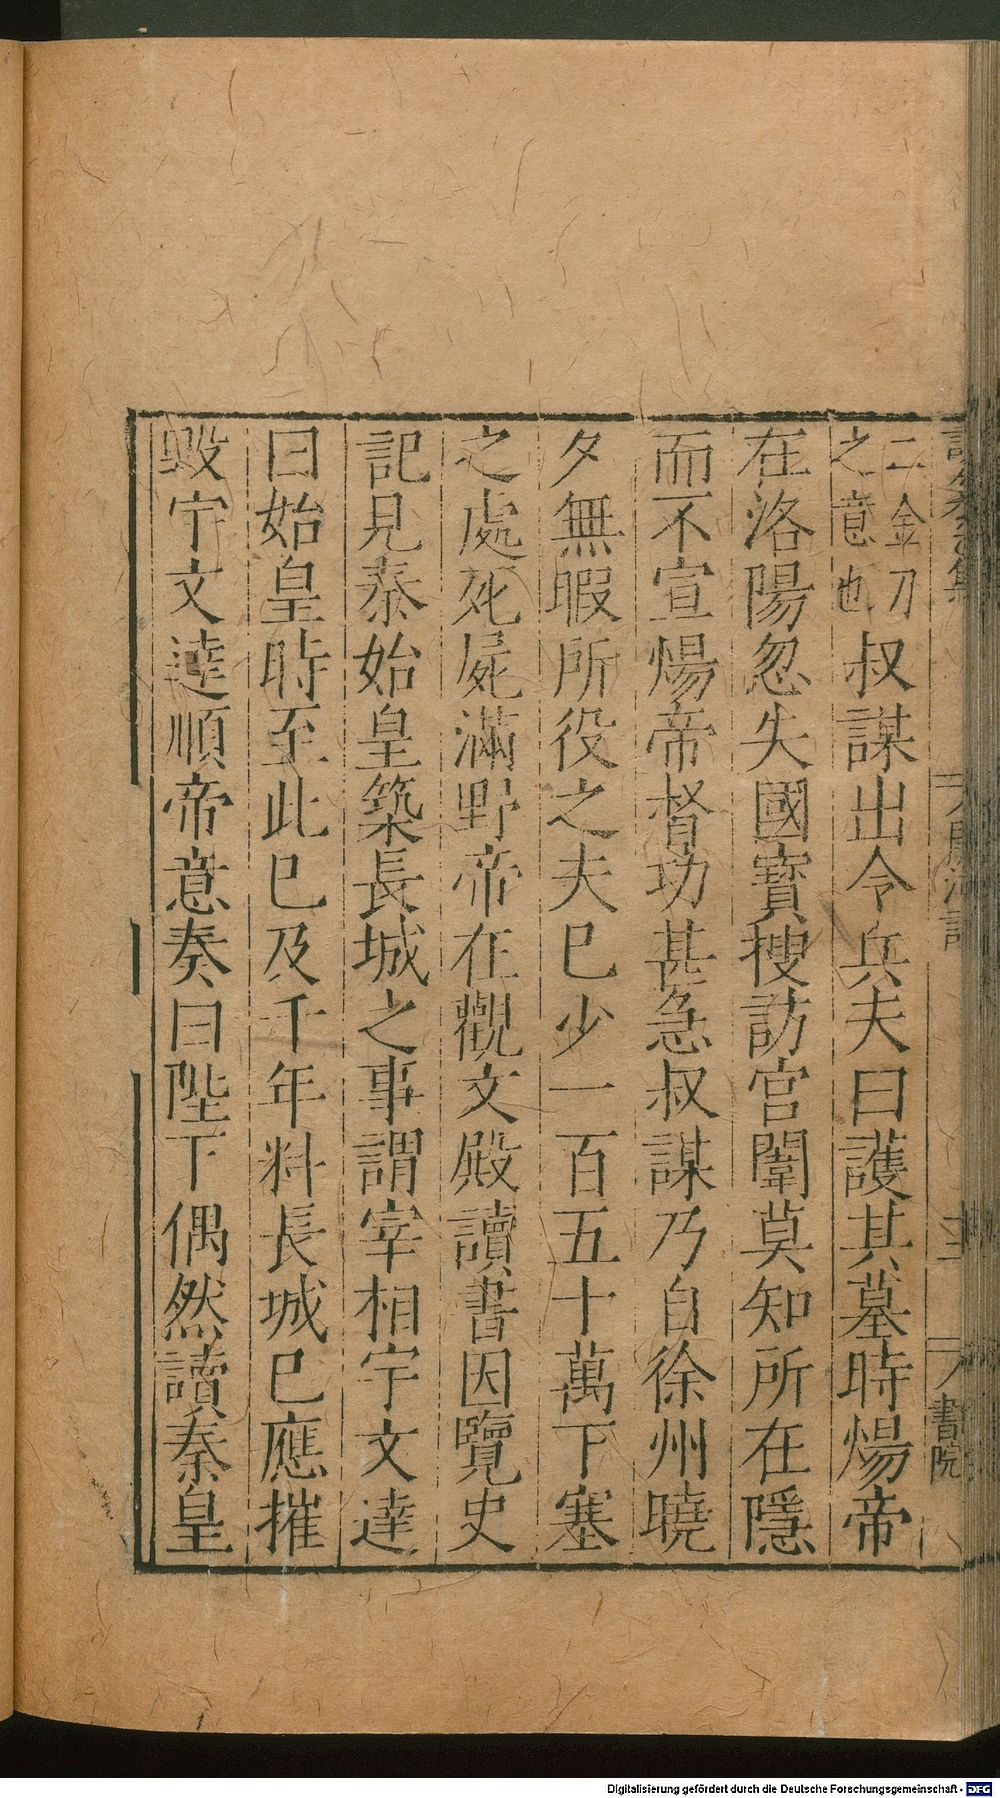 二金刀之意也叔謀出令兵夫曰護其墓時煬帝
在洛陽忽失國寶搜訪宮闈莫知所在隱
而不宣煬帝督功甚急叔謀乃自徐州曉
夕無暇所役之夫已少一百五十萬下塞
之處死屍滿野帝在觀文殿讀書因覽史
記見秦始皇築長城之事謂宰相宇文達
曰始皇時至此已及千年料長城已應摧
毀宇文達順帝意奏曰陛下偶然讀秦皇
書院
Digitalisierung gefördert durch die Deutsche Forschungsgemeinschaft - DFG